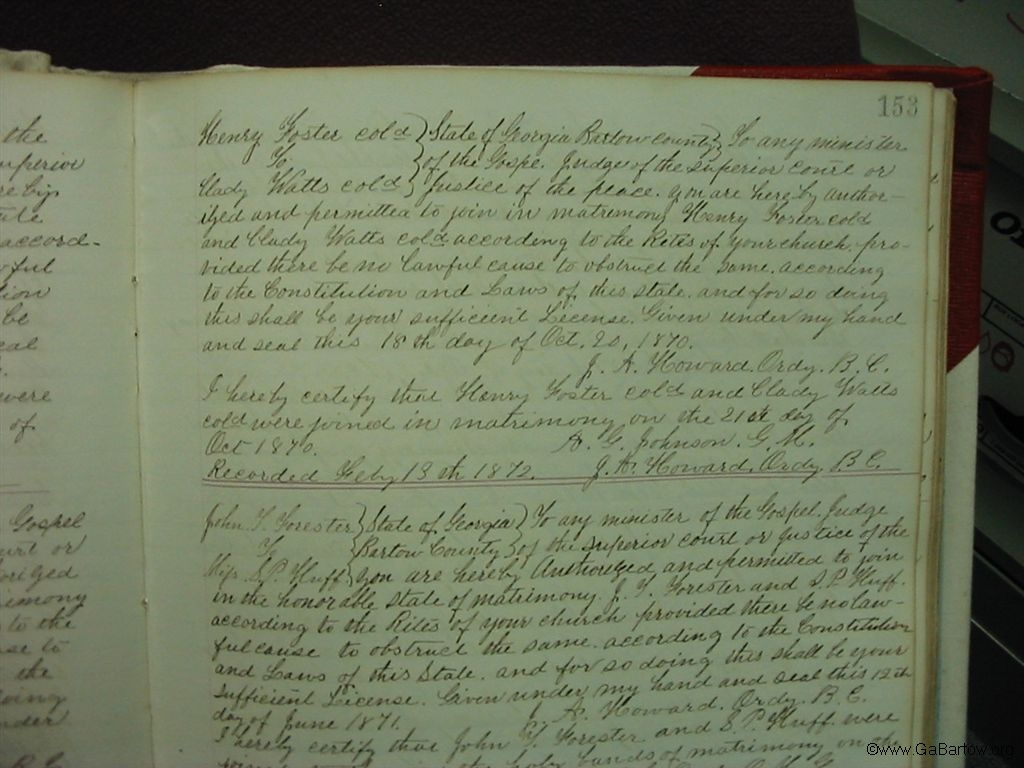 the
uperior
accord-
ful
tion
be
were
of
Gospel
or
to the
the
153
Henry Foster cold } State of Georgia Bartow county } To any minister
To } of the Gospe. Judge of the Superior court or
Clady Watts cold } Justice of the peace. you are here by author-
ized and permitted to join in matrimony Henry Foster cold
and Clady Watts cold according to the Rites of your church, pro-
vided there be no lawful cause to obstruct the same. according
to the Constitution and Laws of this state. and for so doing
this shall be your sufficient License. Given under my hand
and seal this 18th day of Oct. 20, 1870.
J. A. Howard. Ordy. B. C.
I hereby certify that Henry Foster cold and Clady Watts
cold were joined in matrimony on the 21st day of
Oct 1870. A. G. Johnson. G. M.
Recorded Feby 13th 1872. J. A. Howard. Ordy. B C.
John T. Forester } State of Georgia } To any minister of the Gospel. Judge
To } Bartow County } of the Superior court or Justice of the
Miss S.P. Huff } you are hereby Authorized and permitted to join
in the honorable state of matrimony. J. T. Forester and S. P. Huff.
according to the Rites of your church provided there be no law-
ful cause to obstruct the same. according to the Constitution
and Laws of this State. and for so doing this shall be your
sufficient License. Given under my hand and seal this 12th
day of June 1871. J. A. Howard. Ordy. B. C.
I hereby certify that John T. Forester and S. P. Huff. were
bands of matrimony on the
©www.GaBartow.org